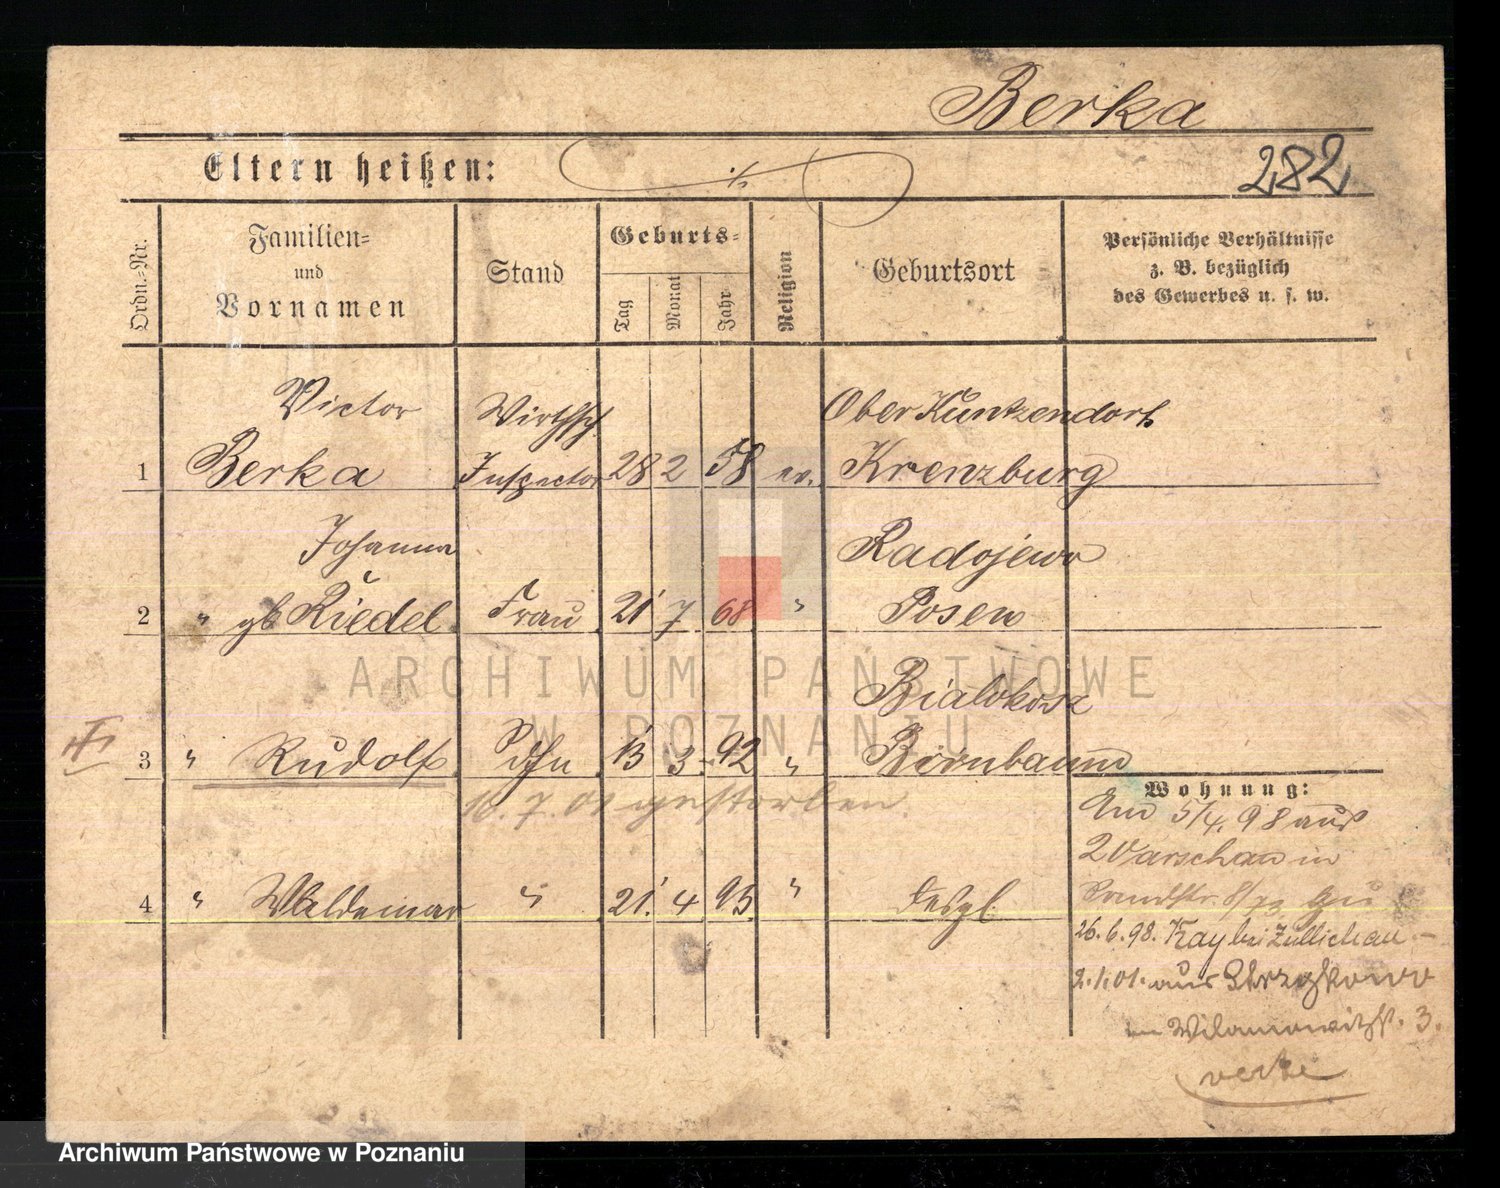 Berka
Eltern heißen: ./. 282
Ordn.-Nr.
Familien-
und
Vornamen
Stand
Geburts-
Tag
Monat
Jahr
Religion
Geburtsort
Persönliche Verhältnisse
z. B. bezüglich
des Gewerbes u. s. w.
Victor Wirthsch. Ober Kuntzendorf
1 Berka Inspector 28 2 58 ev. Kreuzburg
Johanna Radojewo
2 " gb Riedel Frau 21 7 68 " Posen
Bialokosz
3 " Rudolf Sohn 13 3 92 " Birnbaum
Wohnung:
16.7.01 gestorben.
Am 5/4. 98 aus
Warschau in
4 " Waldemar " 21. 4 93. " desgl.
26.6.98. Kay bei Züllichau -
2.1.01. aus
Wilamowitzst. 3.
ARCHIWUM PAŃSTWOWE
W POZNANIU
Archiwum Państwowe w Poznaniu